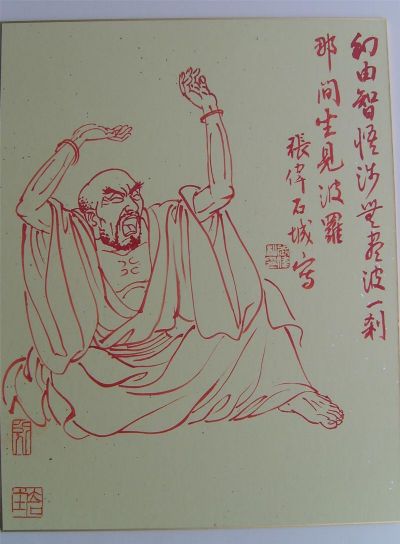 幻由智悟涉無盡波一刹
那间生見波羅
張偉石城寫